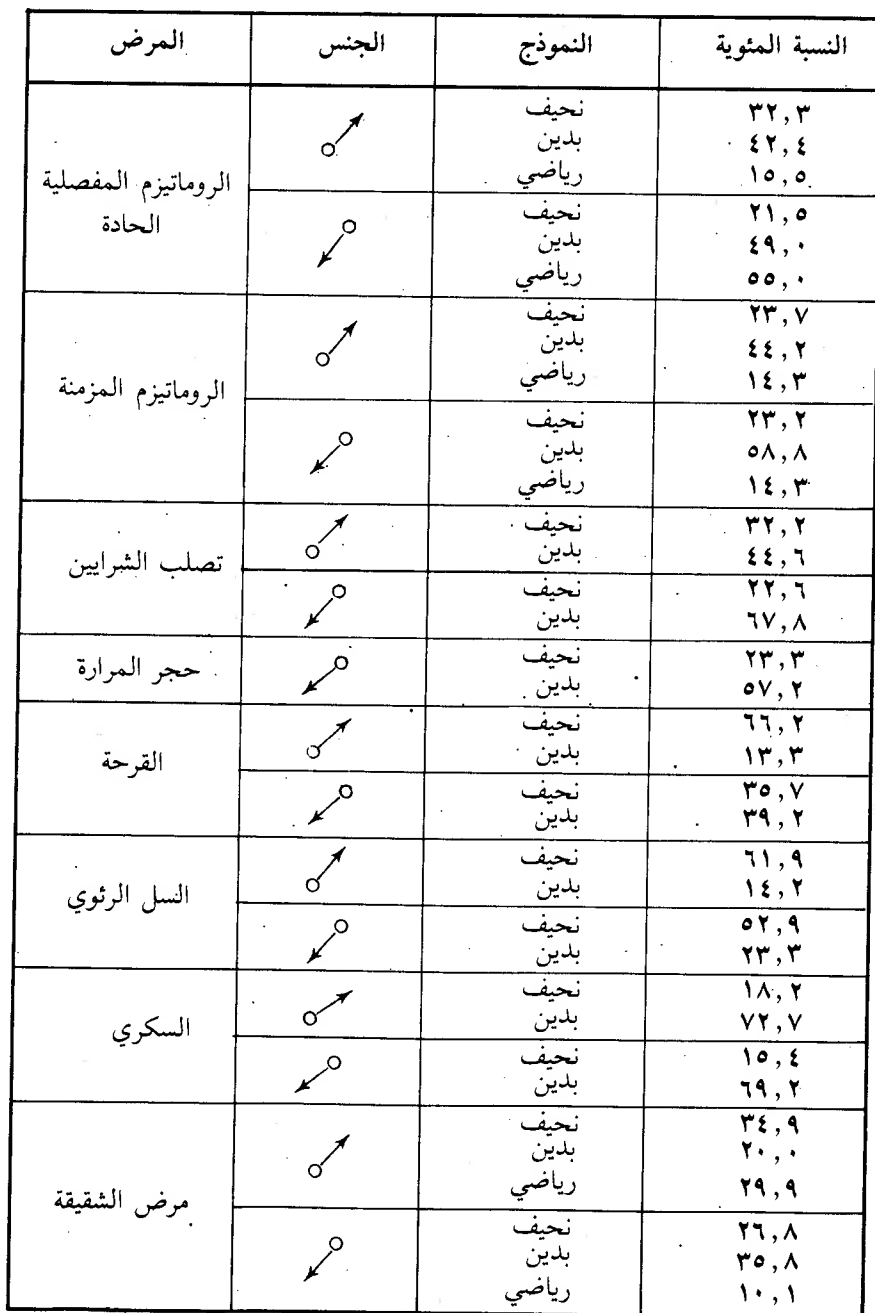 المرض الجنس النموذج النسبة المئوية
الروماتيزم المفصلية
الحادة
نحيف ٣٢,٣
بدين ٤٢,٤
رياضي ١٥,٥
نحيف ٢١,٥
بدين ٤٩,٠
رياضي ٥٥,٠
الروماتيزم المزمنة
نحيف ٢٣,٧
بدين ٤٤,٢
رياضي ١٤,٣
نحيف ٢٣,٢
بدين ٥٨,٨
رياضي ١٤,٣
تصلب الشرايين
نحيف ٣٢,٢
بدين ٤٤,٦
نحيف ٢٢,٦
بدين ٦٧,٨
حجر المرارة
نحيف ٢٣,٣
بدين ٥٧,٢
القرحة
نحيف ٦٦,٢
بدين ١٣,٣
نحيف ٣٥,٧
بدين ٣٩,٢
السل الرئوي
نحيف ٦١,٩
بدين ١٤,٢
نحيف ٥٢,٩
بدين ٢٣,٣
السكري
نحيف ١٨,٢
بدين ٧٢,٧
نحيف ١٥,٤
بدين ٦٩,٢
مرض الشقيقة
نحيف ٣٤,٩
بدين ٢٠,٠
رياضي ٢٩,٩
نحيف ٢٦,٨
بدين ٣٥,٨
رياضي ١٠,١